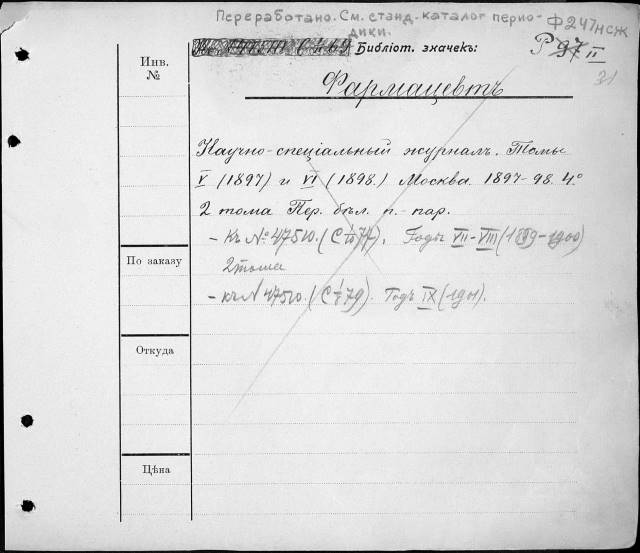 Переработано. См. станд. каталог перио-
дики.
Ф 247 нсж
Библіот. значекъ:
Р 97 II
31
Инв.
№
Фармацевтъ
Научно-спеціальный журналъ. Томы
V (1897) и VI (1898.) Москва. 1897-98. 4°
2 тома Пер. бѣл. п.-пар.
- Къ № 47510. Годы VII-VIII (1899-1900)
2 тома
- къ № 47510. Годъ IX (1901).
По заказу
Откуда
Цѣна